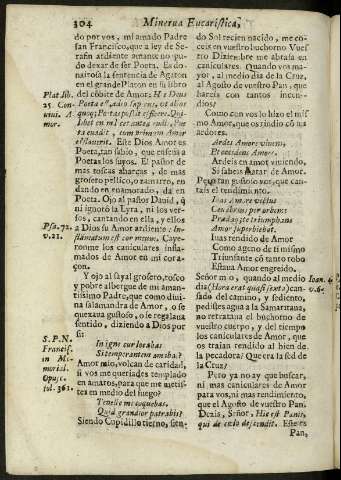 304
Minerva Eucaristica,
do por vos, mi amado Padre
san Francisco, que a ley de Sera-
fin ardiente amante no pu-
do dexar de ser Poeta. Es do-
nairosa la sentencia de Agaton
en el grande Platon en su libro
del cõbite de Amor: Hic Deus
Poeta est, adeo
quoq; Poetas possit efficere. Qui-
libet
ta evadit, cum primum Amor
afflaverit. Este Dios Amor es
Poeta, tan sabio, que enseña a
Poetas los suyos. El pastor de
mas toscas abarcas, de mas
grosero pellico, o zamarro, en
dando en enamorado, dà en
Poeta. Ojo al pastor David, q̃
ni ignorò la Lyra, ni los ver-
sos, cantando en ella, y ellos
a Dios su Amor ardiente: In-
flammatum est cor meum. Caye-
ronme los caniculares infla-
mados de Amor en mi cora-
çon.
Y ojo al sayal grosero, tosco
y pobre albergue de mi aman-
tissimo Padre, que como divi-
na salamandra de Amor, o se
quexava gustoso, o se regalava
sentido, diziendo a Dios por
si:
In igne cur locabas
Si temperantem amaba?
Amor mio, volcan de caridad,
si vos me queriades templado
en amaros, para que me metis-
tes en medio del fuego?
Tenello me coquebas,
Quid grandior patrabis?
Siendo Cupidillo tierno, sien-
Plat. lib.
25. Con-
vivi. A-
mor.
Psa. 72.
v. 21.
S. P. N.
Francisc.
in Me-
morial.
Opusc.
fol. 361.
do Sol recien nacido, me co-
ceis en vuestro buchorno Vuestro
Diziembre me abrasa en
caniculares. Quando vos ma-
yor, al medio dia de la Cruz,
al Agosto de vuestro Pan, que
hareis con tantos incen-
dios?
Como con vos lo hizo el mis-
mo Amor, que os rindio cõ sus
ardores.
Ardes Amore vivens,
Et occidens Amore.
Ardeis en amor viviendo,
Si sabeis matar de Amor.
Pero tan gustoso vos, que can-
tais el rendimiento.
Ivas Amore victus
Cen
Pradas, &c triumphans
Amor
Iuas rendido de Amor
Como ageno de ti mismo
Triunfante cõ tanto robo
Estava Amor engreido.
Señor mio, quando al medio
dia (Hora erat quasi sexta) can-
sado del camino, y sediento,
pedisses agua a la Samaritana,
no retratava el bochorno de
vuestro cuerpo, y del tiempo
los caniculares de Amor, que
os traian rendido al bien de
la pecadora? Que era la sed de
la Cruz?
Pero ya no ay que buscar,
ni mas caniculares de Amor
para vos, ni mas rendimiento,
que el Agosto de vuestro Pan.
Dezia, Señor, Hic est Panis,
qui de cælo descendit. Este es
Pan,
Ioan. 4.
v. 6.